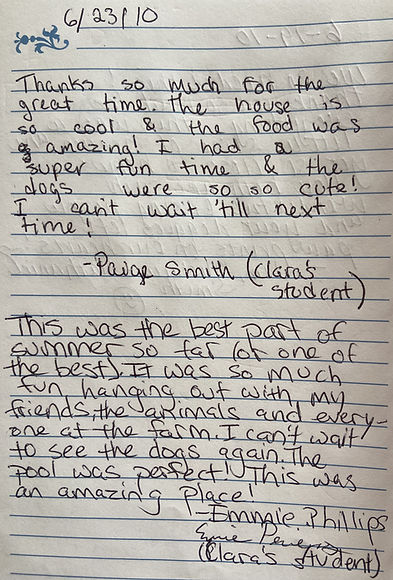 6/23/10
Thanks so much for the
great time. The house is
so cool & the food was
amazing! I had a
super fun time & the
dogs were so so cute!
I can't wait 'till next
time!
-Paige Smith (Clara's
student)
This was the best part of
summer so far (or one of
the best). It was so much
fun hanging out with my
friends, the animals and every-
one at the farm. I can't wait
to see the dogs again. The
pool was perfect! This was
an amazing place!
-Emmie Phillips
(Clara's student)